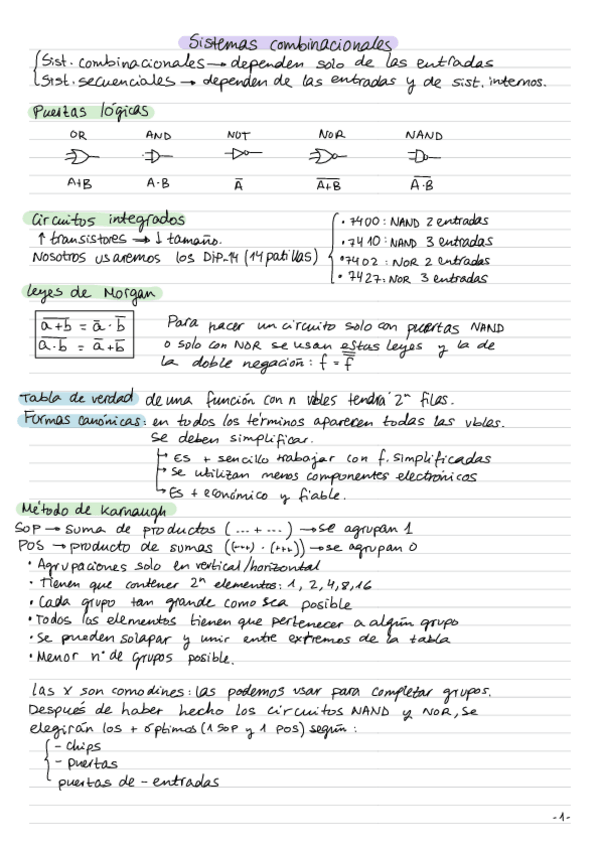 Sistemas combinacionales
Sist. combinacionales → dependen solo de las entradas
Sist. secuenciales → dependen de las entradas y de sist. internos.
Puertas lógicas
OR AND NOT NOR NAND
A+B A·B A̅ A̅+̅B̅ A̅·̅B̅
Circuitos integrados
↑ transistores → ↓ tamaño.
Nosotros usaremos los DIP-14 (14 patillas)
· 7400: NAND 2 entradas
· 7410: NAND 3 entradas
· 7402: NOR 2 entradas
· 7427: NOR 3 entradas
Leyes de Morgan
a̅+̅b̅ = a̅ · b̅
a̅·̅b̅ = a̅ + b̅
Para hacer un circuito solo con puertas NAND
o solo con NOR se usan estas leyes y la de
la doble negación: f = f̿
Tabla de verdad de una función con n vbles tendrá 2ⁿ filas.
Formas canónicas: en todos los términos aparecen todas las vbles.
Se deben simplificar.
→ Es + sencillo trabajar con f. simplificadas
→ Se utilizan menos componentes electrónicos
→ Es + económico y fiable.
Método de Karnaugh
SOP → suma de productos (... + ...) → se agrupan 1
POS → producto de sumas ((-+-) · (++-)) → se agrupan 0
· Agrupaciones solo en vertical/horizontal
· Tienen que contener 2ⁿ elementos: 1, 2, 4, 8, 16
· Cada grupo tan grande como sea posible
· Todos los elementos tienen que pertenecer a algún grupo
· Se pueden solapar y unir entre extremos de la tabla
· Menor nº de grupos posible.
Las X son comodines: las podemos usar para completar grupos.
Después de haber hecho los circuitos NAND y NOR, se
elegirán los + óptimos (1 SOP y 1 POS) según:
- chips
- puertas
puertas de - entradas
-1-